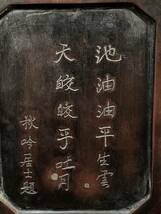 池油油乎生雲
天皎皎乎吐月
秋吟居士題